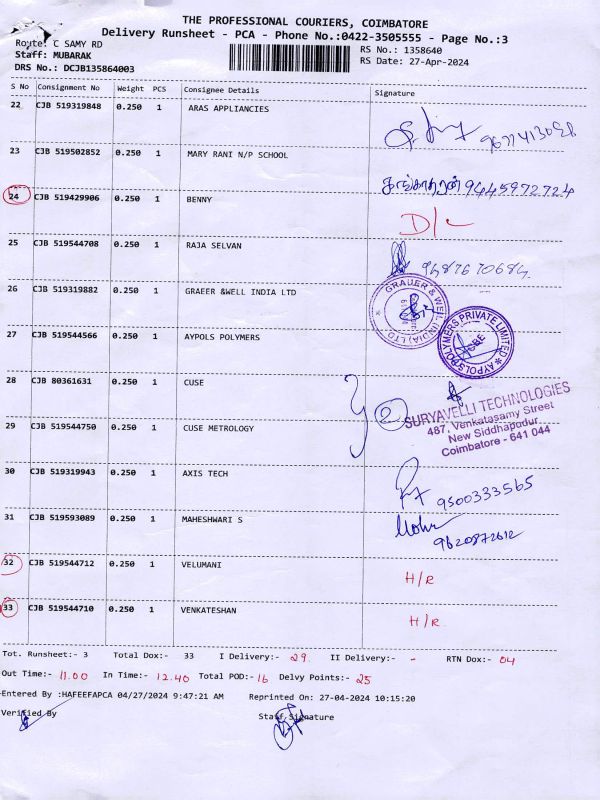 THE PROFESSIONAL COURIERS, COIMBATORE
Delivery Runsheet - PCA - Phone No.:0422-3505555 - Page No.:3
Route: C SAMY RD
RS No.: 1358640
Staff: MUBARAK
RS Date: 27-Apr-2024
DRS No.: DCJB135864003
S No Consignment No Weight PCS Consignee Details Signature
22 CJB 519319848 0.250 1 ARAS APPLIANCIES
23 CJB 519502852 0.250 1 MARY RANI N/P SCHOOL 9445972724
24 CJB 519429906 0.250 1 BENNY D/L
25 CJB 519544708 0.250 1 RAJA SELVAN 9487670684
26 CJB 519319882 0.250 1 GRAEER &WELL INDIA LTD
GRAUER & WEIL (INDIA) LTD.
27 CJB 519544566 0.250 1 AYPOLS POLYMERS
AYPOLS POLYMERS PRIVATE LIMITED
CBE
28 CJB 80361631 0.250 1 CUSE
SURYAVELLI TECHNOLOGIES
487, Venkatasamy Street
New Siddhapudur
Coimbatore - 641 044
29 CJB 519544750 0.250 1 CUSE METROLOGY
30 CJB 519319943 0.250 1 AXIS TECH 9500333565
31 CJB 519593089 0.250 1 MAHESHWARI S 9620872612
32 CJB 519544712 0.250 1 VELUMANI H/R
33 CJB 519544710 0.250 1 VENKATESHAN H/R
Tot. Runsheet:- 3 Total Dox:- 33 I Delivery:- 29 II Delivery:- - RTN Dox:- 04
Out Time:- 11.00 In Time:- 12.40 Total POD:- 16 Delvy Points:- 25
Entered By :HAFEEFAPCA 04/27/2024 9:47:21 AM Reprinted On: 27-04-2024 10:15:20
Verified By Staff Signature